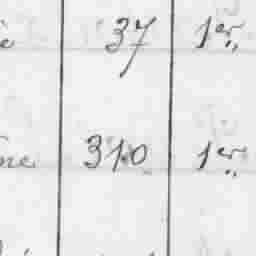 37 1er
310 1er